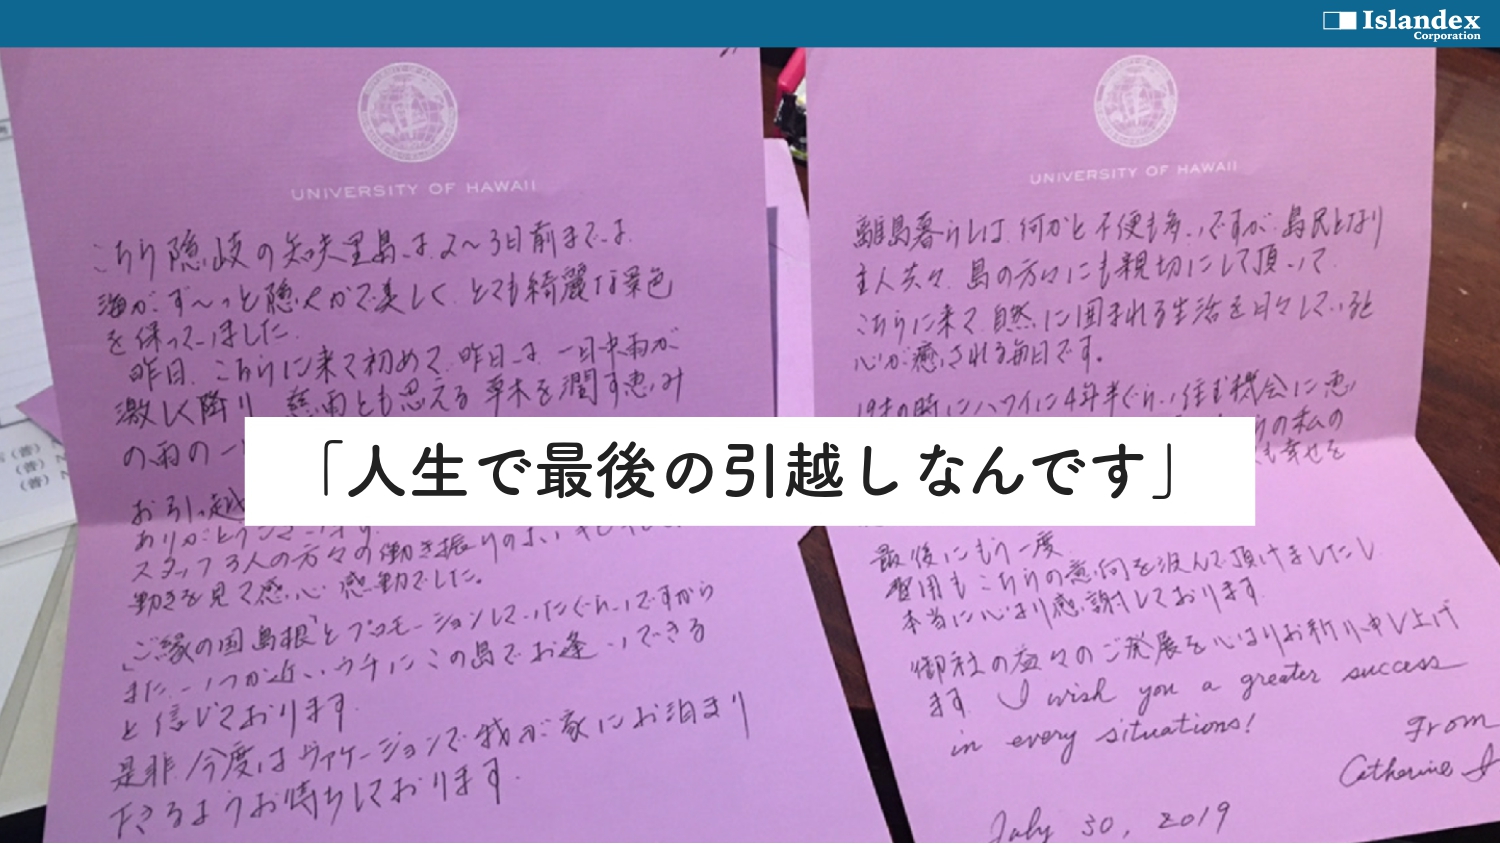 Islandex
Corporation
UNIVERSITY OF HAWAII
こちら隠岐の知夫里島は2〜3日前までは
海がず〜っと隠やかで美しく、とても綺麗な景色
を保っていました。
昨日、こちらに来て初めて、昨日は一日中雨が
激しく降り、慈雨とも思える草木を潤す恵み
の雨の一
お引っ越
ありがとうございます。
スタッフ3人の方々の働き振りの
動きを見て感心感動でした。
「ご縁の国島根」とプロモーションしていたぐらいですから
また、いつか近いウチにこの島でお逢いできる
と信じております。
是非、今度はヴァケーションで我が家にお泊まり
下さるようお待ちしております。
「人生で最後の引越しなんです」
UNIVERSITY OF HAWAII
離島暮らしは、何かと不便も多いですが、島民となり
主人共々、島の方々にも親切にして頂いて、
こちらに来て、自然に囲まれる生活を日々していると
心が癒される毎日です。
19才の時にハワイに4年半ぐらい住む機会に恵
の私の
も幸せを
最後にもう一度、
費用もこちらの意向を汲んで頂けましたし、
本当に心より感謝しております。
御社の益々のご発展を心よりお祈り申し上げ
ます。I wish you a greater success
in every situations!
From
Catherine
July 30, 2019